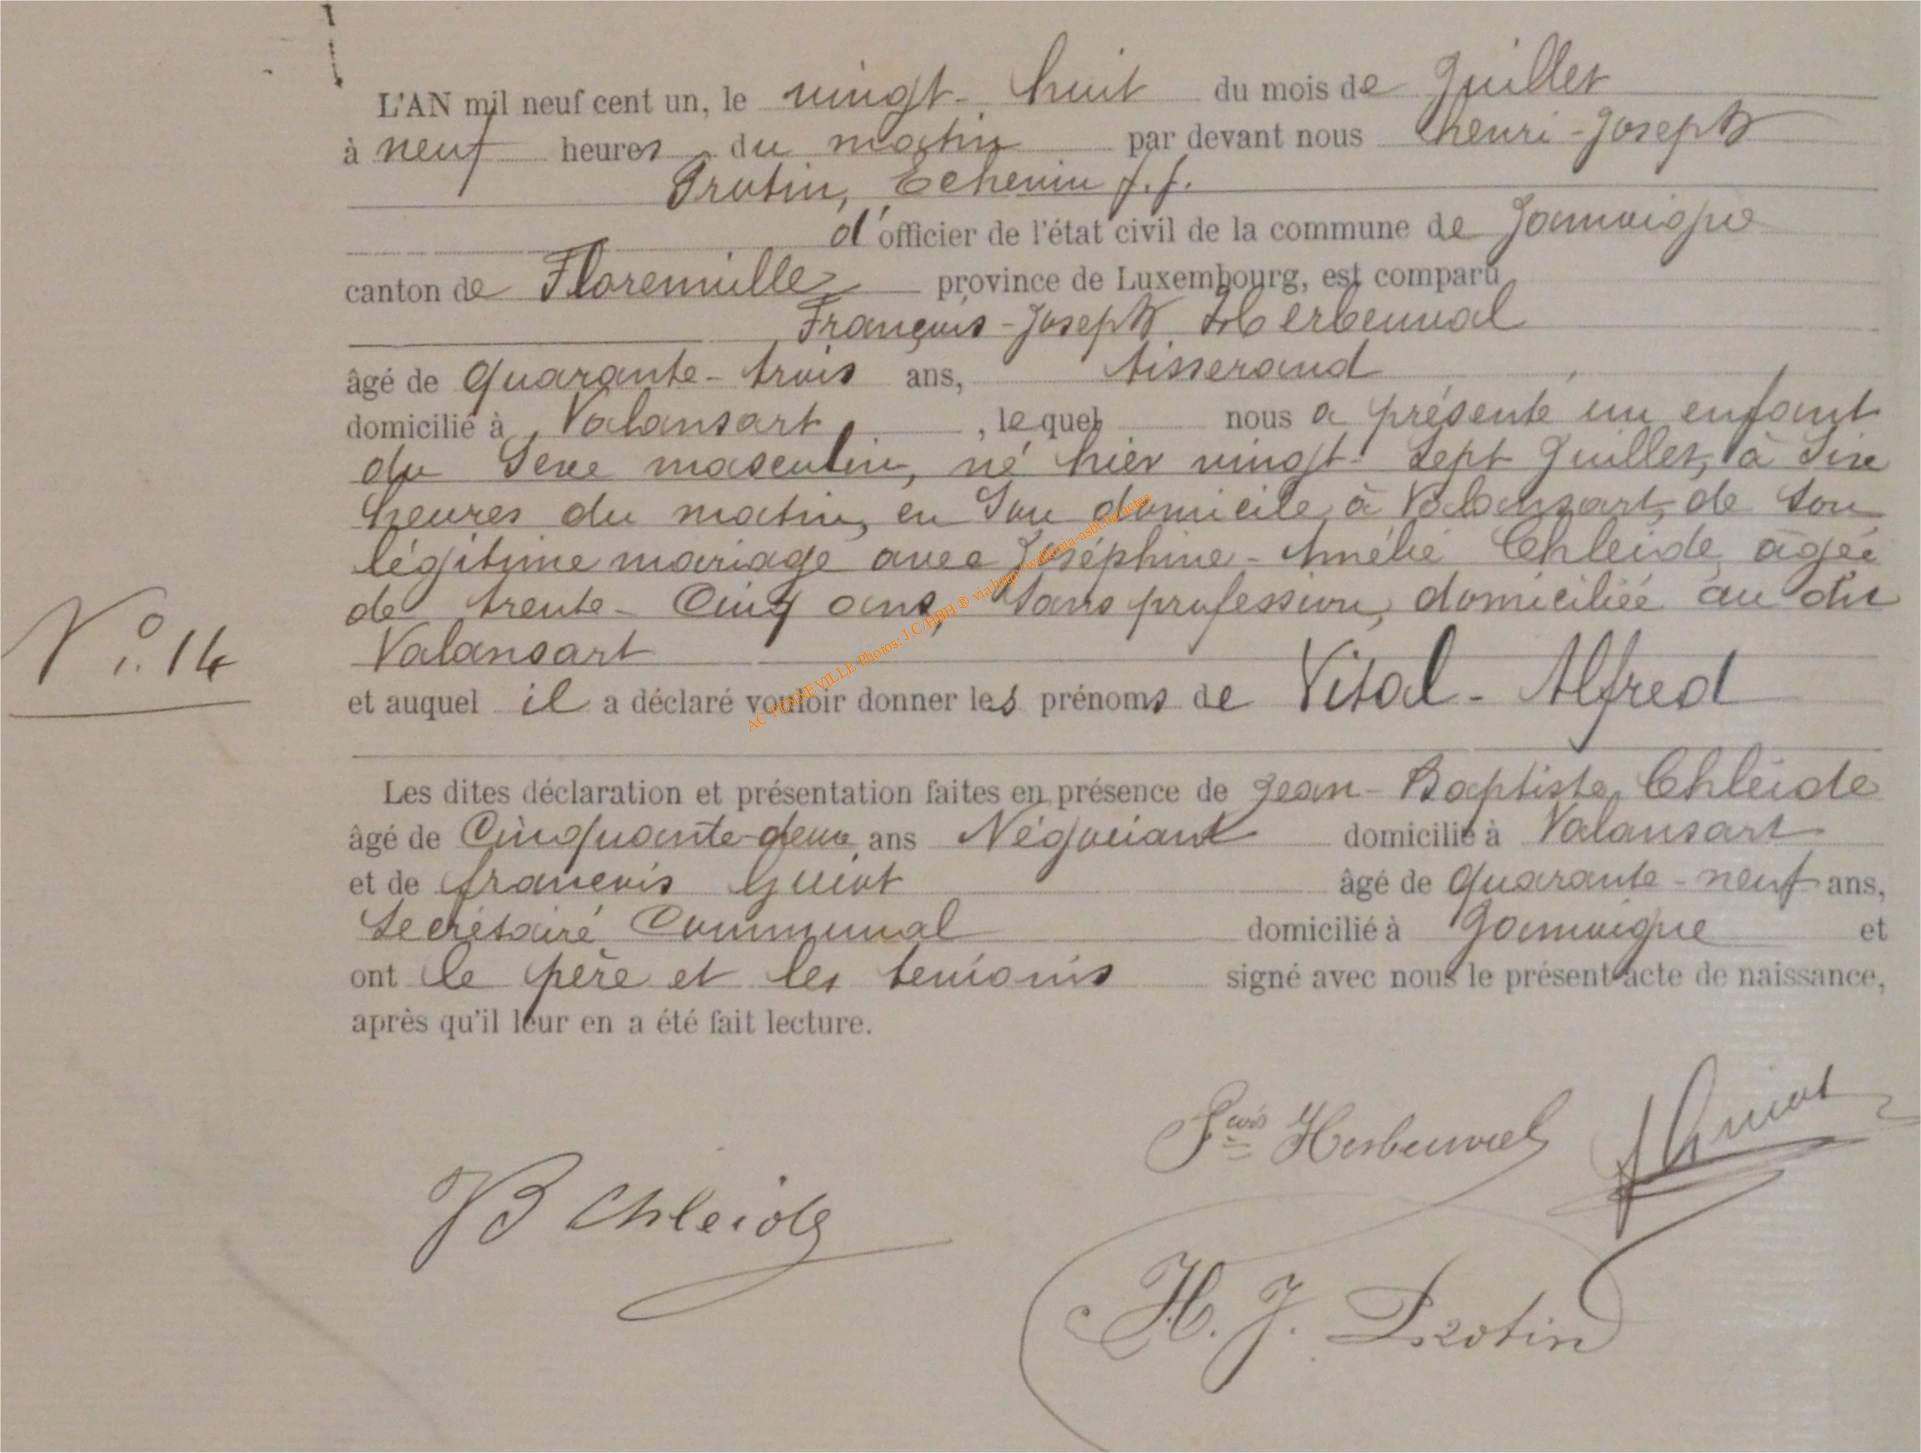 L'AN mil neuf cent un, le vingt-huit du mois de Juillet
à neuf heures du matin par devant nous henri-Joseph
Protin, Echevin f.f.
d'officier de l'état civil de la commune de Jamoigne
canton de Florenville province de Luxembourg, est comparu
François-Joseph Herbeuval
âgé de quarante-trois ans, tisserand
domicilié à Valansart, lequel nous a présenté un enfant
du Sexe masculin, né hier vingt-Sept Juillet, à Six
heures du matin, en Son domicile à Valansart, de Son
légitime mariage avec Joséphine-Amélie Chleide, agée
de trente-Cinq ans, Sans profession, domiciliée au dit
Nº. 14
Valansart
et auquel il a déclaré vouloir donner les prénoms de Vital-Alfred
Les dites déclaration et présentation faites en présence de Jean-Baptiste Chleide
âgé de Cinquante-deux ans Négociant domicilié à Valansart
et de françois Guiot âgé de quarante-neuf ans,
Secrétaire Communal domicilié à Jamoigne et
ont le père et les temoins signé avec nous le présent acte de naissance,
après qu'il leur en a été fait lecture.
Fçois Herbeuval
F Guiot
JB Chleide
H. J. Protin
ACTE JNEVILLE Photos: J C HBH ® via